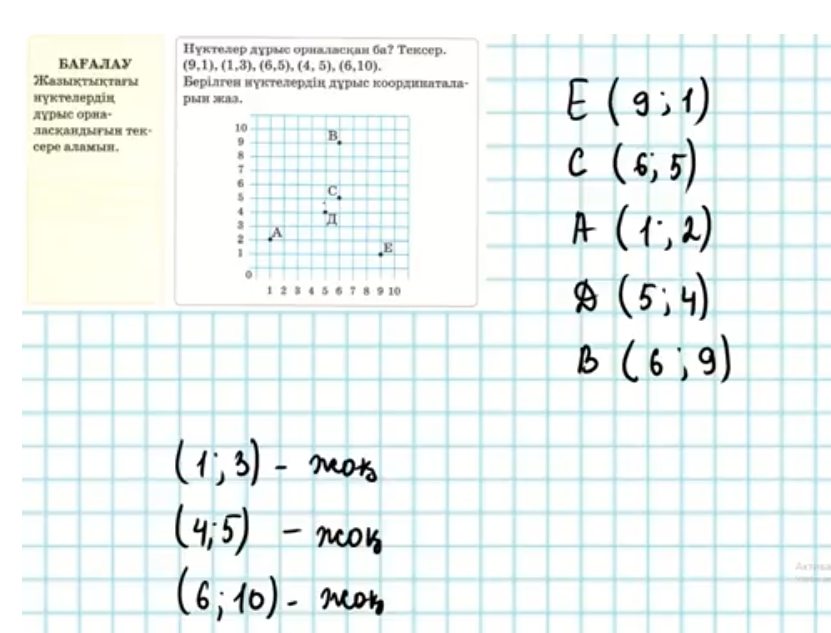 БАҒАЛАУ
Жазықтықтағы
нүктелердің
дұрыс орна-
ласқандығын тек-
сере аламын.
Нүктелер дұрыс орналасқан ба? Тексер.
(9,1), (1,3), (6,5), (4, 5), (6,10).
Берілген нүктелердің дұрыс координатала-
рын жаз.
10
9
8
7
6
5
4
3
2
1
0
В
С
Д
А
Е
1 2 3 4 5 6 7 8 9 10
E (9 ; 1)
C (6; 5)
A (1 ; 2)
Д (5 ; 4)
B (6 ; 9)
(1 ; 3) - жоқ
(4; 5) - жоқ
(6 ; 10) - жоқ